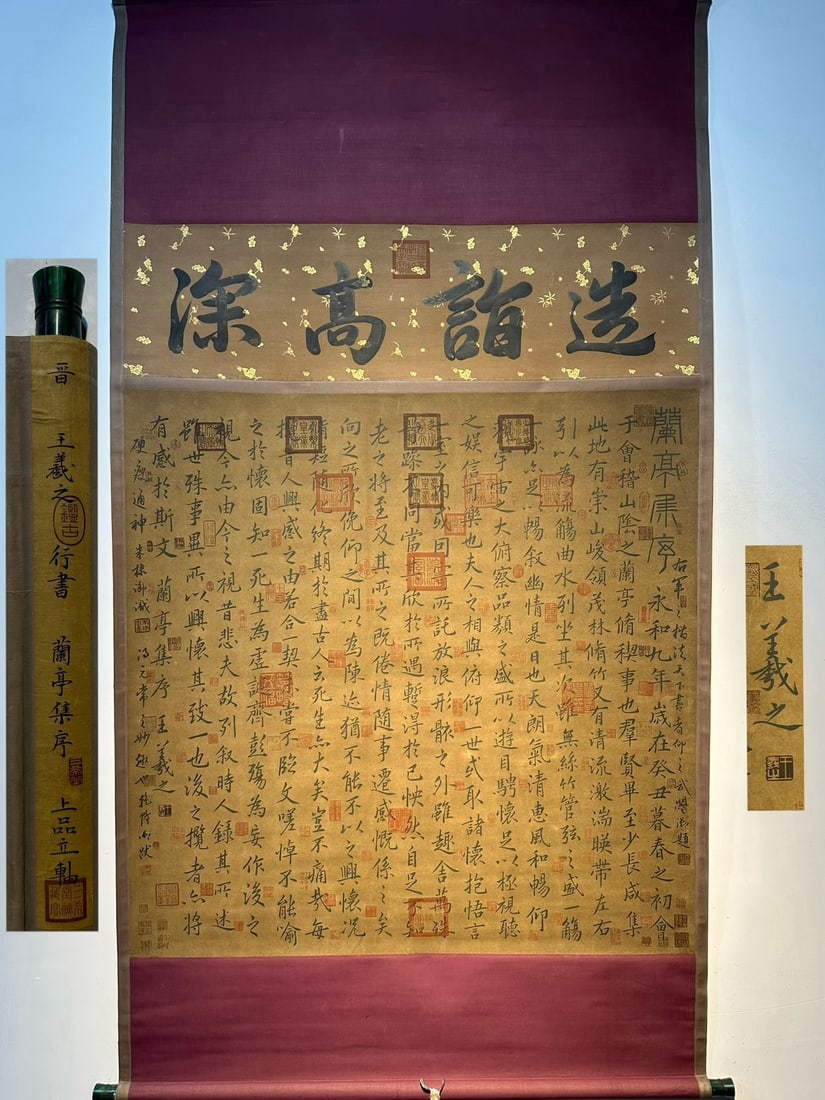 造詣高深
蘭亭集序
永和九年歲在癸丑暮春之初會
于會稽山陰之蘭亭脩稧事也羣賢畢至少長咸集
此地有崇山峻領茂林脩竹又有清流激湍暎帶左右
引以為流觴曲水列坐其次雖無絲竹管弦之盛一觴
一詠亦足以暢叙幽情是日也天朗氣清惠風和暢仰
觀宇宙之大俯察品類之盛所以遊目騁懷足以極視聽
之娛信可樂也夫人之相與俯仰一世或取諸懷抱悟言
一室之內或因寄所託放浪形骸之外雖趣舍萬殊
靜躁不同當其欣於所遇暫得於己怏然自足不知
老之將至及其所之既倦情隨事遷感慨係之矣
向之所欣俛仰之間以為陳迹猶不能不以之興懷況
脩短隨化終期於盡古人云死生亦大矣豈不痛哉每
攬昔人興感之由若合一契未嘗不臨文嗟悼不能喻
之於懷固知一死生為虛誕齊彭殤為妄作後之
視今亦由今之視昔悲夫故列叙時人錄其所述
雖世殊事異所以興懷其致一也後之攬者亦將
有感於斯文 蘭亭集序 王羲之
硬瘦通神 朱棣御識
晉 王羲之 行書 蘭亭集序 上品立軸
鑑古
王羲之